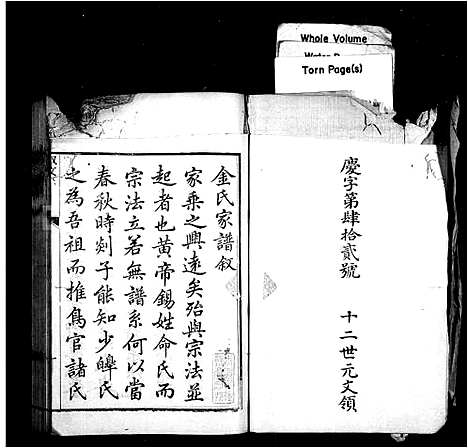 Whole Volume
Torn Page(s)
慶字第肆拾貳號
十二世元文領
金氏家譜敘
家乘之興遠矣殆與宗法並
起者也黃帝錫姓命氏而
宗法立若無譜系何以當
春秋時剡子能知少皞氏
之為吾祖而推鳥官諸氏